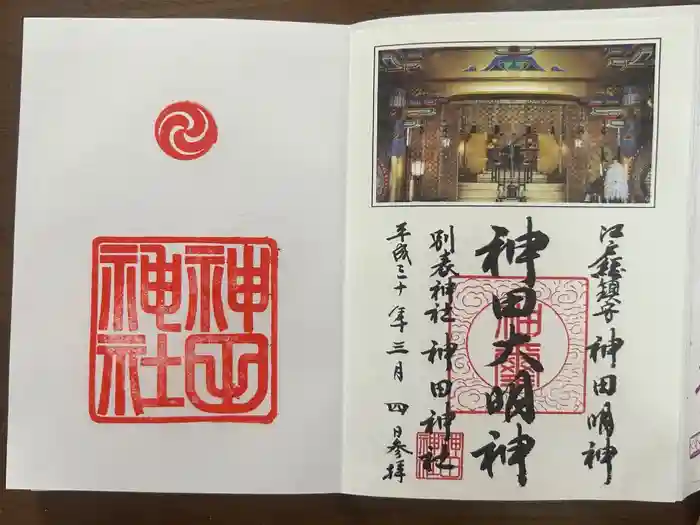 江戸総鎮守 神田明神
神田大明神
別表神社 神田神社
平成三十年三月四日参拝
神田神社
神田神社